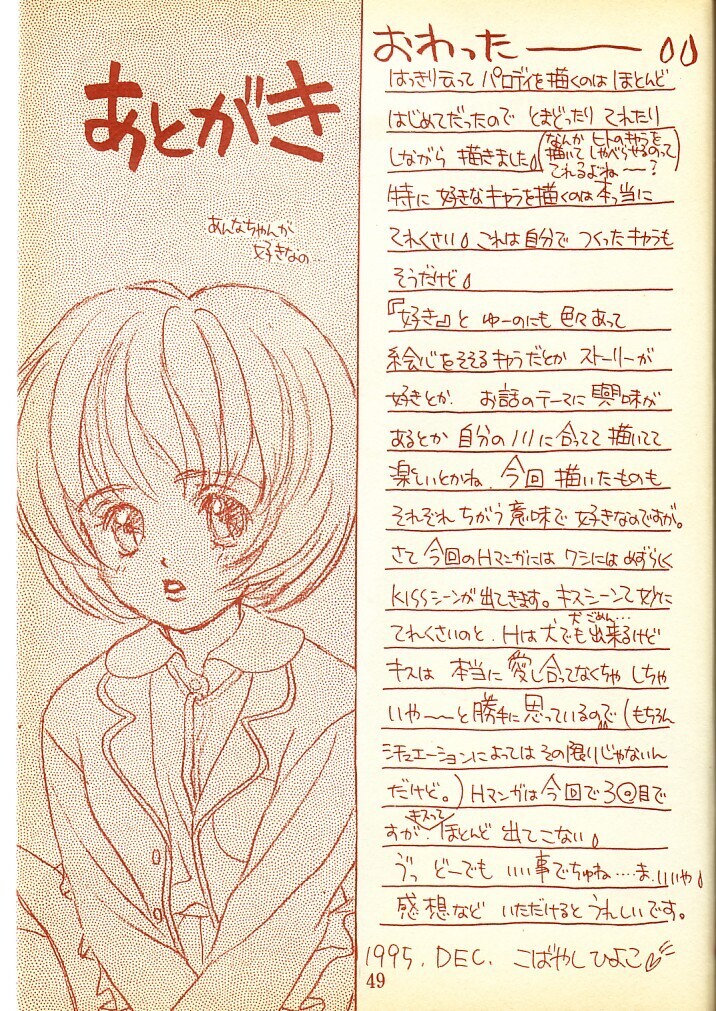 あとがき
あんなちゃんが
好きなの…
おわったー
はっきり云って パロディを描くのは ほとんど
はじめてだったので とまどったり てれたり
しながら 描きました
(なんか ヒトのキャラを
描いて しゃべらせるのって
てれるよね〜?)
特に 好きなキャラを描くのは 本当に
てれくさい。これは自分で つくったキャラも
そうだけど。
『好き』と ゆーのにも 色々あって
絵心をそそるキャラだとか ストーリーが
好きとか お話のテーマに 興味が
あるとか 自分のノリに合ってて 描いてて
楽しいとかね 今回 描いたものも
それぞれ ちがう意味で 好きなのですが。
さて 今回のHマンガには ワシには めずらしく
KISSシーンが出てきます。キスシーンて妙に
犬ごめん…
てれくさいのと、Hは犬でも出来るけど
キスは 本当に 愛し合ってなくちゃ しちゃ
いや〜〜と 勝手に 思っているので (もちろん
シチュエーションによっては その限りじゃないん
だけど。) Hマンガは 今回で 3回目で
キスって
すが ほとんど 出てこない。
うっ どーでも いい事でちゅね……ま、いいや。
感想など いただけると うれしいです。
1995. DEC. こばやしひよこ
49